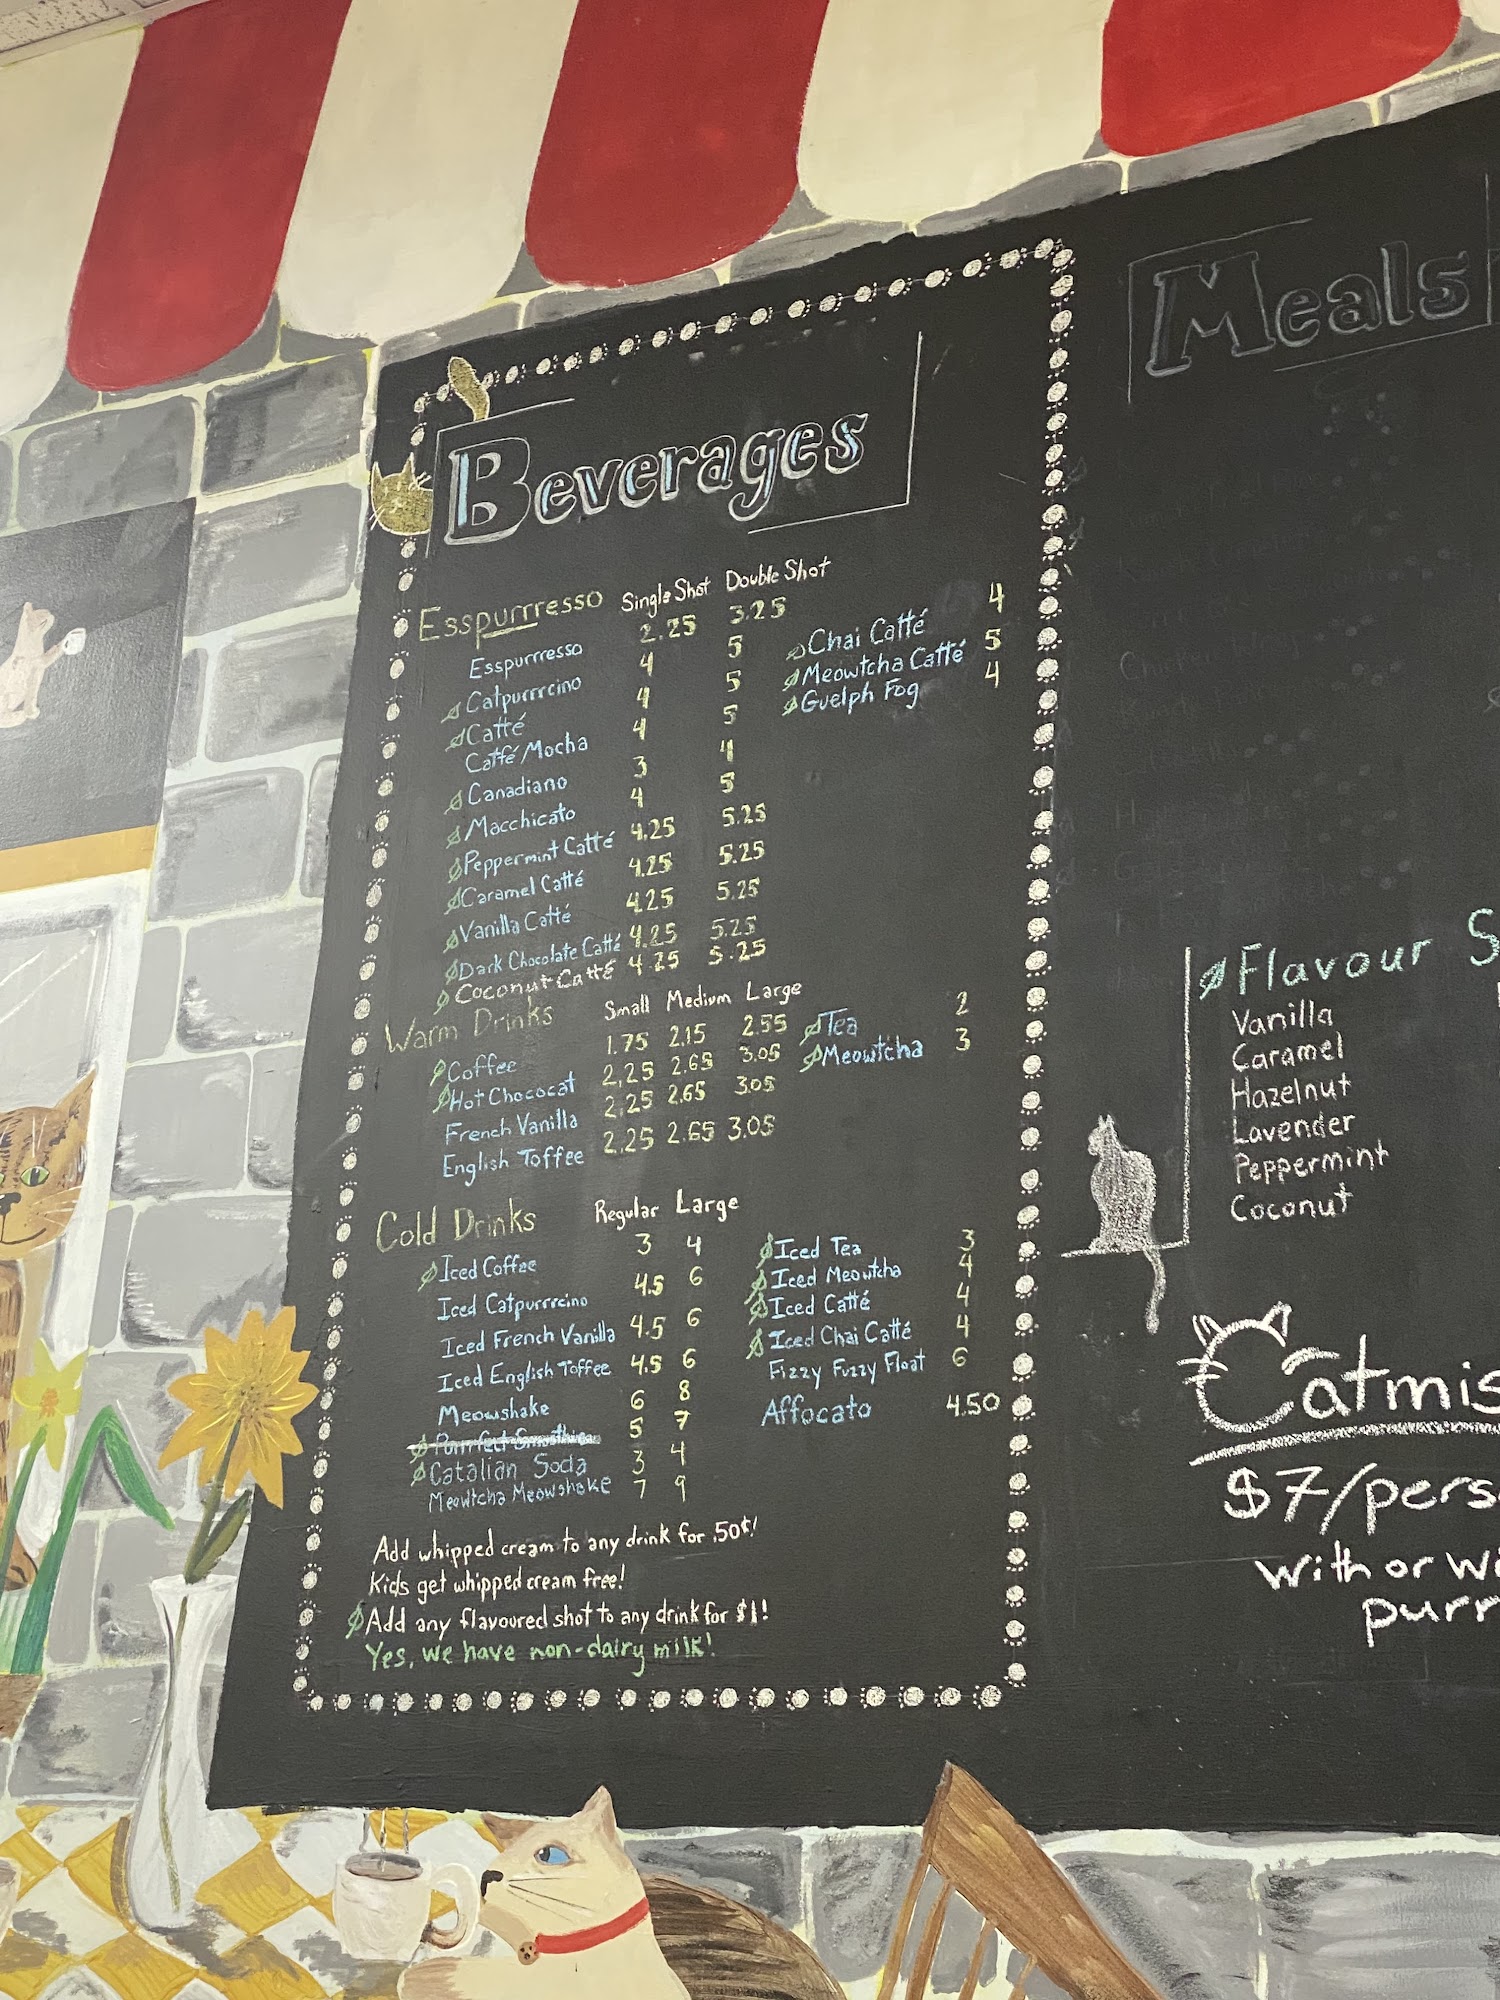 Beverages
Esspurrresso Single Shot Double Shot
Esspurrresso 2.25 3.25
Catpurrrcino 4 5
Catté 4 5
Catté Mocha 4 5
Canadiano 3 4
Macchicato 4 5
Peppermint Catté 4.25 5.25
Caramel Catté 4.25 5.25
Vanilla Catté 4.25 5.25
Dark Chocolate Catté 4.25 5.25
Coconut Catté 4.25 5.25
Chai Catté 4
Meowtcha Catté 5
Guelph Fog 4
Warm Drinks Small Medium Large
Coffee 1.75 2.15 2.55
Hot Chococat 2.25 2.65 3.05
French Vanilla 2.25 2.65 3.05
English Toffee 2.25 2.65 3.05
Tea 2
Meowtcha 3
Cold Drinks Regular Large
Iced Coffee 3 4
Iced Catpurrrcino 4.5 6
Iced French Vanilla 4.5 6
Iced English Toffee 4.5 6
Meowshake 6 8
5 7
Catalian Soda 3 4
Meowtcha Meowshake 7 9
Iced Tea 3
Iced Meowtcha 4
Iced Catté 4
Iced Chai Catté 4
Fizzy Fuzzy Float 6
Affocato 4.50
Add whipped cream to any drink for .50¢!
Kids get whipped cream free!
Add any flavoured shot to any drink for $1!
Yes, we have non-dairy milk!
Meals
Flavour S
Vanilla
Caramel
Hazelnut
Lavender
Peppermint
Coconut
Catmis
$7/pers
with or wi
purr